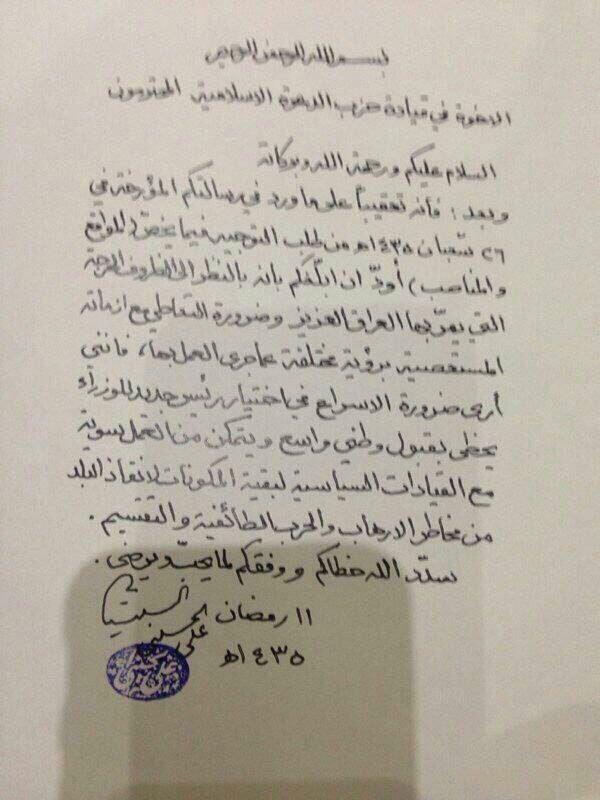 بسم الله الرحمن الرحيم
الاخوة في قيادة حزب الدعوة الاسلامية المحترمون
السلام عليكم ورحمة الله وبركاته
وبعد : فأنه تعقيباً على ما ورد في رسالتكم المؤرخة في
٢٦ شعبان ١٤٣٥هـ من طلب التوجيه فيما يخصّ (المواقع
والمناصب) أودّ ان ابلّغكم بانه بالنظر الى الظروف الحرجة
التي يمرّ بها العراق العزيز وضرورة التعاطي مع ازماته
المستعصية برؤية مختلفة عما جرى العمل بها، فانني
أرى ضرورة الاسراع في اختيار رئيس جديد للوزراء
يحظى بقبول وطني واسع ويتمكن من العمل سوية
مع القيادات السياسية لبقية المكونات لانقاذ البلد
من مخاطر الارهاب والحرب الطائفية والتقسيم .
سدّد الله خطاكم ووفقكم لما يحبّ ويرضى .
١١ رمضان
١٤٣٥هـ
علي الحسيني
السيستاني